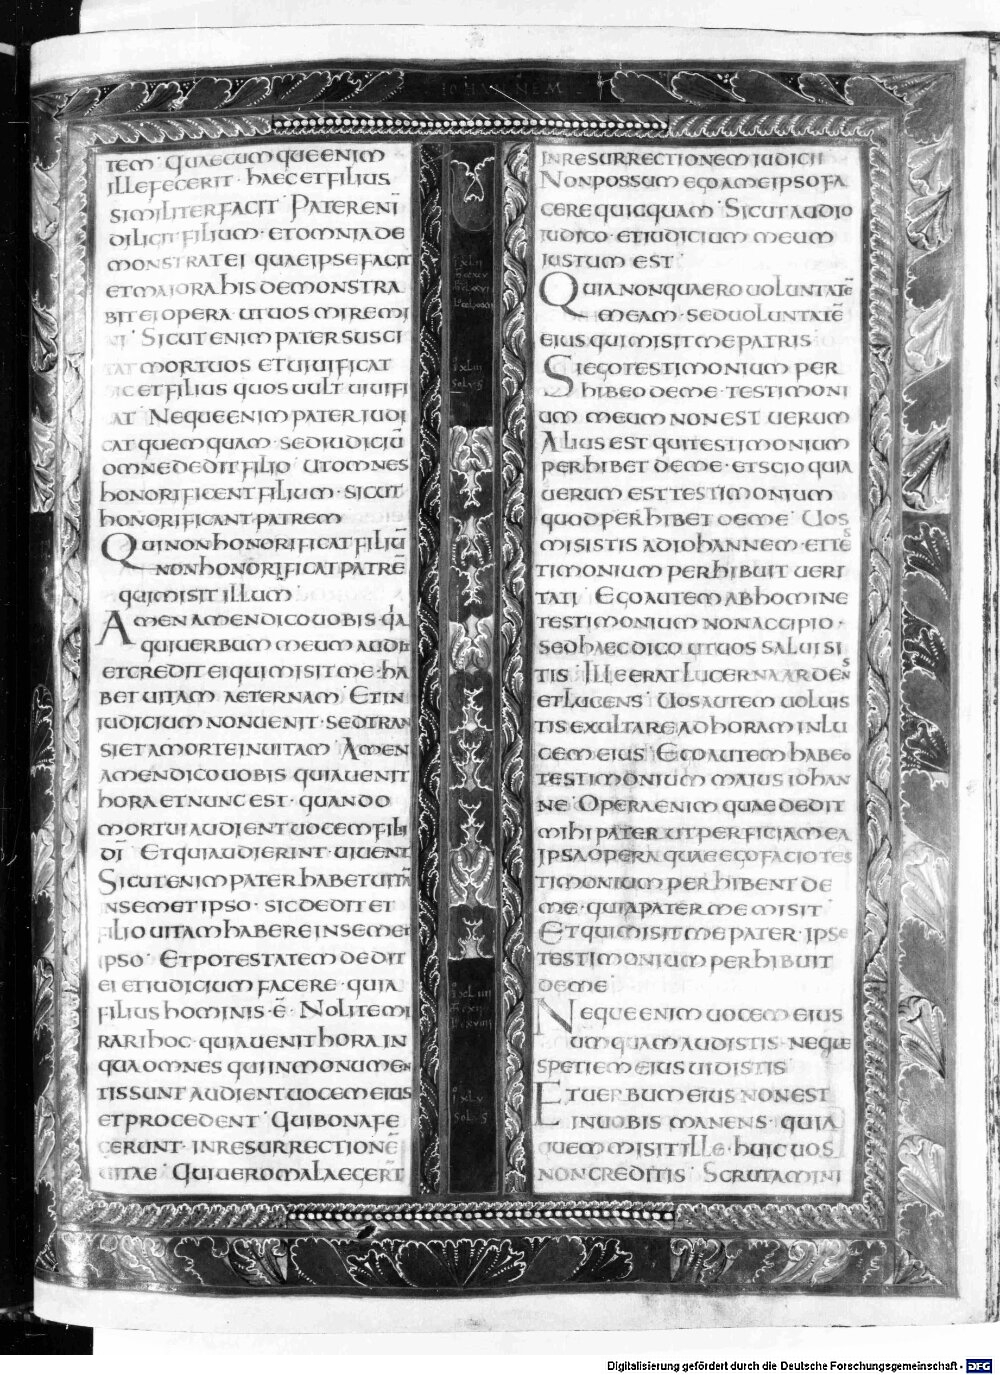 IOHANNEM
TEM· QUAECUMQUEENIM
ILLEFECERIT· HAECETFILIUS
SIMILITERFACIT· PATERENĪ
DILIGITFILIUM· ETOMNIADE
MONSTRATEI QUAEIPSEFACIT
ETMAIORAHISDEMONSTRA
BITEIOPERA· UTUOSMIREMI
NI· SICUTENIMPATERSUSCI
TATMORTUOS ETUIUIFICAT
SICETFILIUS QUOSUULTUIUIFI
CAT· NEQUEENIMPATERIUDI
CATQUEMQUAM· SEDIUDICIŪ
OMNEDEDITFILIO· UTOMNES
HONORIFICENTFILIUM· SICUT
HONORIFICANTPATREM
QUINONHONORIFICATFILIŪ
NONHONORIFICATPATRĒ
QUIMISITILLUM·
AMENAMENDICOUOBIS· QA
QUIUERBUMMEUMAUDIT
ETCREDITEIQUIMISITME· HA
BETUITAM AETERNAM· ETIN
IUDICIUMNONUENIT· SEDTRAN
SIETAMORTEINUITAM· AMEN
AMENDICOUOBIS QUIAUENIT
HORAETNUNCEST· QUANDO
MORTUIAUDIENTUOCEMFILII
DĪ· ETQUIAUDIERINT· UIUENT
SICUTENIMPATERHABETUITĀ
INSEMETIPSO· SICDEDITET
FILIOUITAMHABEREINSEMET
IPSO· ETPOTESTATEMDEDIT
EIETIUDICIUMFACERE· QUIA
FILIUSHOMINIS·Ē· NOLITEMI
RARIHOC· QUIAUENITHORAIN
QUAOMNESQUIINMONUMEN
TISSUNTAUDIENTUOCEMEIUS
ETPROCEDENT· QUIBONAFE
CERUNT· INRESURRECTIONĒ
UITAE· QUIUEROMALAEGERT̄
INRESURRECTIONEMIUDICII
NONPOSSUMEGOAMEIPSOFA
CEREQUICQUAM· SICUTAUDIO
IUDICO· ETIUDICIUMMEUM
IUSTUMEST·
QUIANONQUAEROUOLUNTATĒ
MEAM· SEDUOLUNTATĒ
EIUSQUIMISITMEPATRIS
SIEGOTESTIMONIUMPER
HIBEODEME· TESTIMONI
UMMEUMNONESTUERUM
ALIUSESTQUITESTIMONIUM
PERHIBETDEME· ETSCIOQUIA
UERUMESTTESTIMONIUM
QUODPERHIBETDEME· UOS
MISISTISADIOHANNEM· ETTES
TIMONIUMPERHIBUITUERI
TATI· EGOAUTEMABHOMINE
TESTIMONIUMNONACCIPIO·
SEDHAECDICOUTUOSSALUISI
TIS· ILLEERATLUCERNAARDENS
ETLUCENS· UOSAUTEMUOLUIS
TISEXULTAREADHORAMINLU
CEMEIUS· EGOAUTEMHABEO
TESTIMONIUMMAIUSIOHAN
NE· OPERAENIMQUAEDEDIT
MIHIPATERUTPERFICIAMEA
IPSAOPERAQUAEEGOFACIOTES
TIMONIUMPERHIBENTDE
ME· QUIAPATERMEMISIT·
ETQUIMISITMEPATER· IPSE
TESTIMONIUMPERHIBUIT
DEME·
NEQUEENIMUOCEMEIUS
UMQUAMAUDISTIS· NEQUE
SPETIEMEIUSUIDISTIS·
ETUERBUMEIUSNONEST
INUOBISMANENS· QUIA
QUEMMISITILLE· HUICUOS
NONCREDITIS· SCRUTAMINI
Digitalisierung gefördert durch die Deutsche Forschungsgemeinschaft - DFG